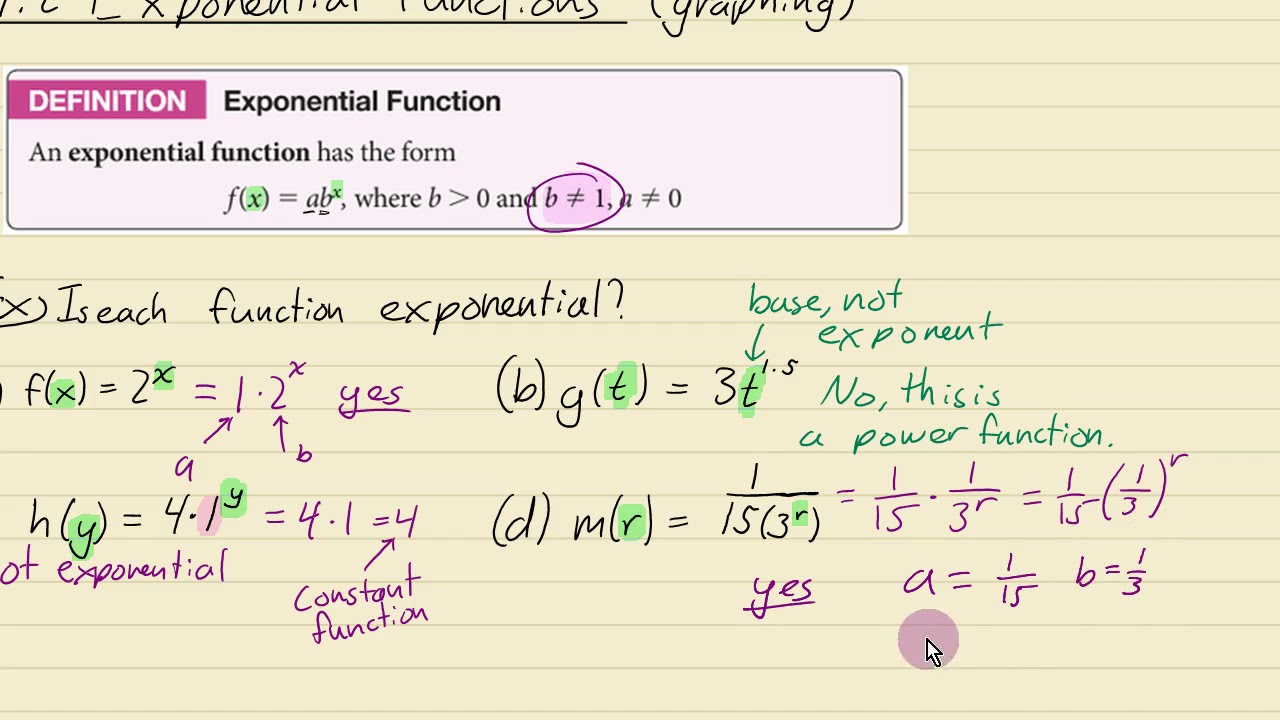 Exponential Functions (graphing)
DEFINITION Exponential Function
An exponential function has the form
f(x) = ab^x, where b > 0 and b ≠ 1, a ≠ 0
x) Is each function exponential?
base, not
exponent
) f(x) = 2^x = 1·2^x yes
a
b
(b) g(t) = 3t^1.5 No, this is
a power function.
h(y) = 4·1^y = 4·1 = 4
ot exponential
Constant
function
(d) m(r) = 1/(15(3^r)) = 1/15 · 1/3^r = 1/15 (1/3)^r
yes a = 1/15 b = 1/3